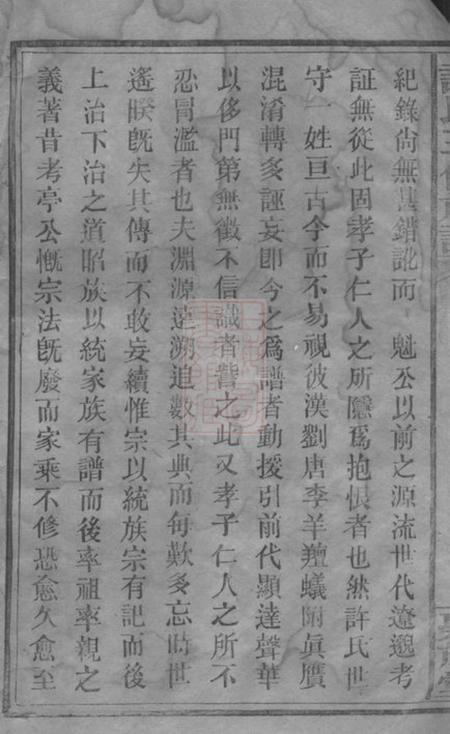 紀錄尙無其錯訛而 魁公以前之源流世代遼邈考
証無從此固孝子仁人之所隱爲抱恨者也然許氏世
守一姓亘古今而不易視彼漢劉唐李羊羶蟻附眞贋
混淆轉多誣妄卽今之爲譜者動援引前代顯達聲華
以侈門第無徵不信識者訾之此又孝子仁人之所不
忍冒濫者也夫淵源逹溯追數其典而每歎多忘時世
遙暌旣失其傳而不敢妄續惟宗以統族宗有記而後
上治下治之道昭族以統家族有譜而後率祖率親之
義著昔考亭公慨宗法旣廢而家乘不修恐愈久愈至